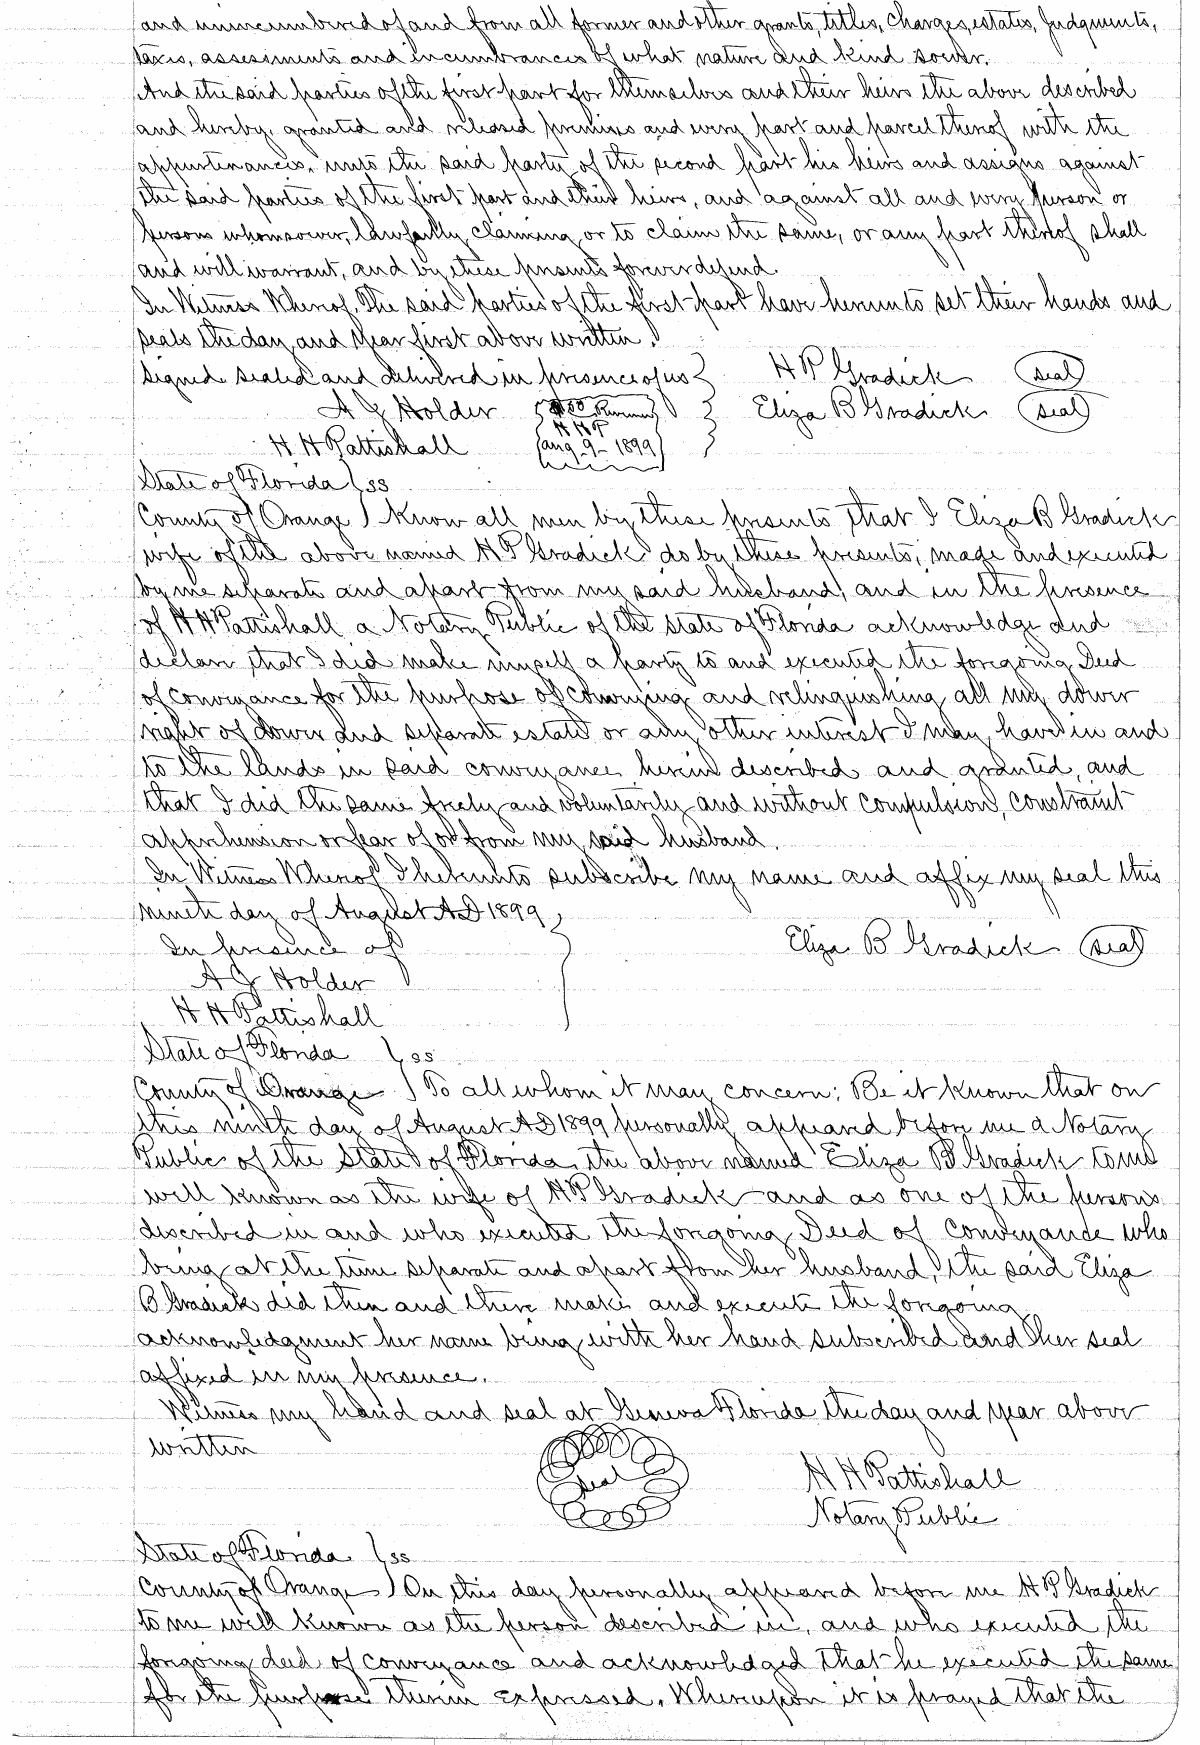 and unincumbered of and from all former and other grants, titles, charges, estates, Judgments,
taxes, assessments and incumbrances of what nature and kind soever.
And the said parties of the first part for themselves and their heirs the above described
and hereby granted and released premises and every part and parcel thereof with the
appurtenances, unto the said party of the second part his heirs and assigns against
the said parties of the first part and their heirs, and against all and every person or
persons whomsoever, lawfully claiming or to claim the same, or any part thereof shall
and will warrant, and by these presents forever defend.
In Witness Whereof, The said parties of the first part have hereunto set their hands and
seals the day and year first above written.
Signed sealed and delivered in presence of us } H P Gradick (seal)
A J Holder Eliza B Gradick (seal)
H H P
H H Pattishall Aug 9 - 1899
State of Florida } ss
County of Orange } Know all men by these presents that I Eliza B Gradick
wife of the above named H P Gradick do by these presents, made and executed
by me separate and apart from my said husband, and in the presence
of H H Pattishall a Notary Public of the State of Florida acknowledge and
declare that I did make myself a party to and executed the foregoing Deed
of conveyance for the purpose of conveying and relinquishing all my dower
right of dower and separate estate or any other interest I may have in and
to the lands in said conveyance herein described and granted, and
that I did the same freely and voluntarily and without compulsion, constraint
apprehension or fear of or from my said husband.
In Witness Whereof I hereunto subscribe my name and affix my seal this
ninth day of August AD 1899
In presence of } Eliza B Gradick (seal)
A J Holder
H H Pattishall
State of Florida } ss
County of Orange } To all whom it may concern: Be it known that on
this ninth day of August AD 1899 personally appeared before me a Notary
Public of the State of Florida, the above named Eliza B Gradick to me
well known as the wife of H P Gradick and as one of the persons
described in and who executed the foregoing Deed of Conveyance who
being at the time separate and apart from her husband, the said Eliza
B Gradick did then and there make and execute the foregoing
acknowledgment her name being with her hand subscribed and her seal
affixed in my presence.
Witness my hand and seal at Geneva Florida the day and year above
written
seal H H Pattishall
Notary Public
State of Florida } ss
County of Orange } On this day personally appeared before me H P Gradick
to me well known as the person described in, and who executed the
foregoing deed of conveyance and acknowledged that he executed the same
for the purpose therein expressed. Whereupon it is prayed that the